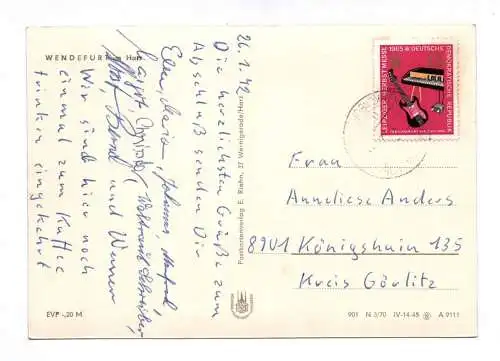 WENDEFURTH Harz
26.1.72
Die herzlichsten Grüße zum
Abschluß senden Dir
und Werner
Wir sind hier noch
einmal zum Kaffee
trinken eingekehrt
EVP -,20 M
Postkartenverlag E. Riehn, 37 Wernigerode/Harz
901 N 3/70 IV-14-45 A 9111
LEIPZIGER HERBSTMESSE 1965
DEUTSCHE DEMOKRATISCHE REPUBLIK
Frau
Anneliese Anders
8901 Königshain 135
Kreis Görlitz